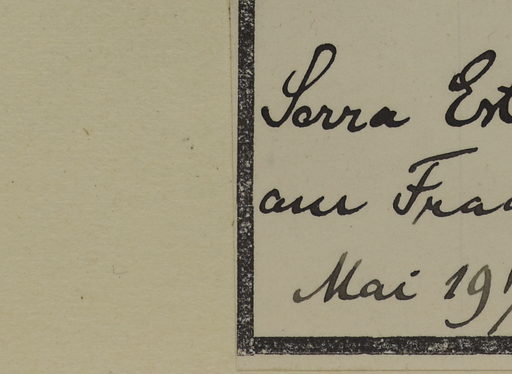 Serra Est
am Fra
Mai 19